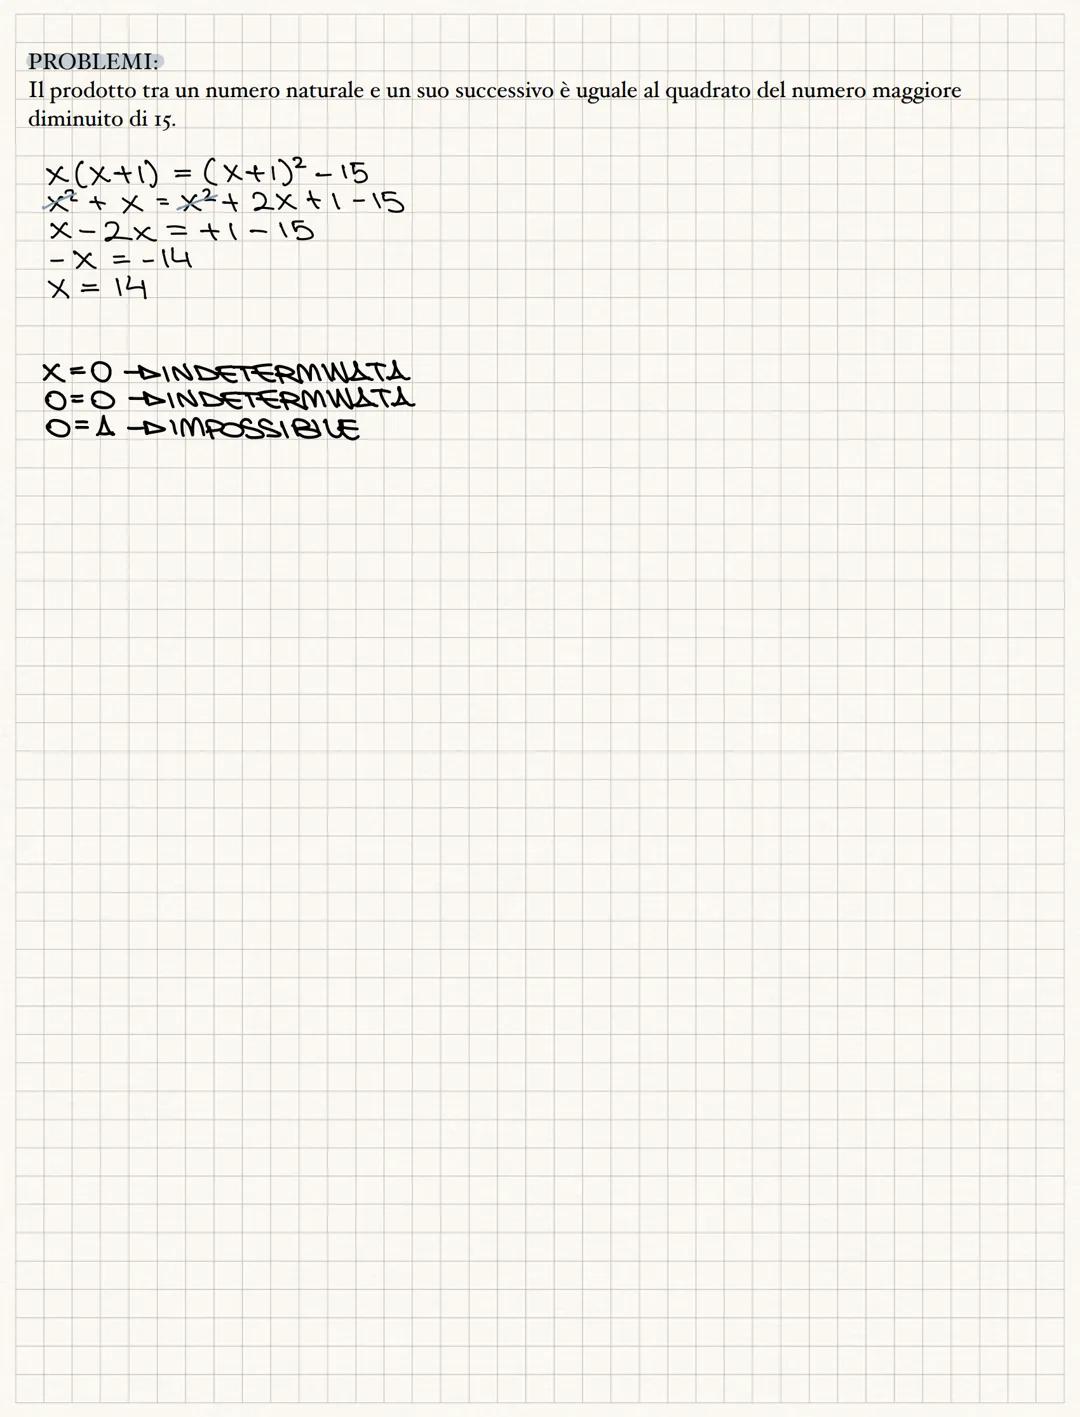 PROBLEMI:
Il prodotto tra un numero naturale e un suo successivo è uguale al quadrato del numero maggiore
diminuito di 15.
x(x+1) = (x+1)² - 15
x² + x = x² + 2x + 1 - 15
x - 2x = +1 - 15
-x = -14
x = 14
x = 0 → INDETERMINATA
0 = 0 → INDETERMINATA
0 = 1 → IMPOSSIBILE